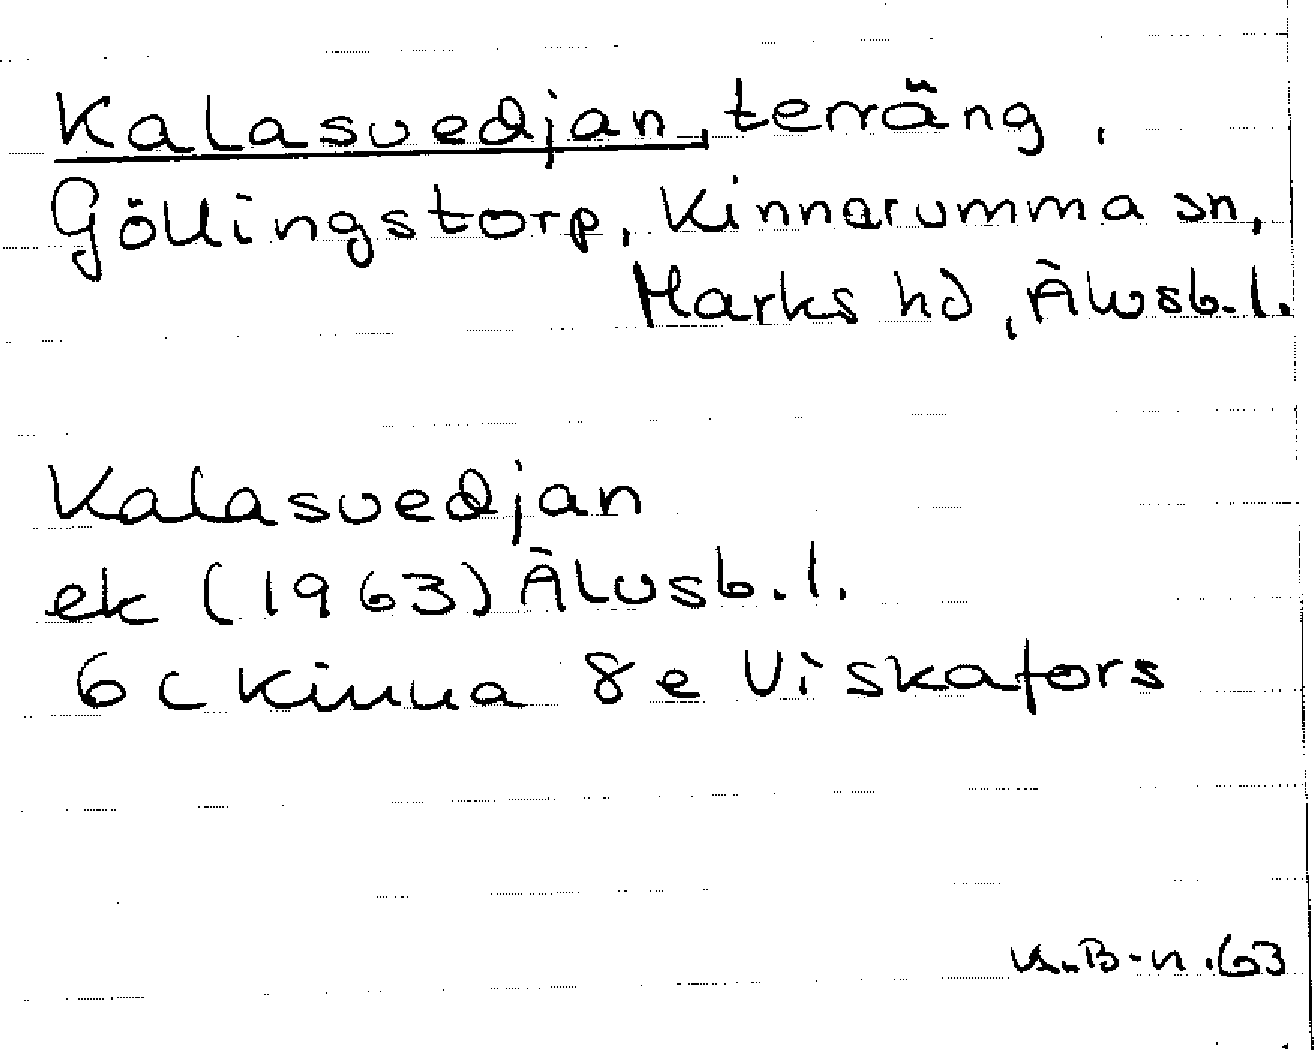 Kalasvedjan, terräng,
Göllingstorp, Kinnarumma sn,
Marks hd, Älvsb. l.
Kalasvedjan
ek (1963) Älvsb. l.
6c Kinna 8e Viskafors
63